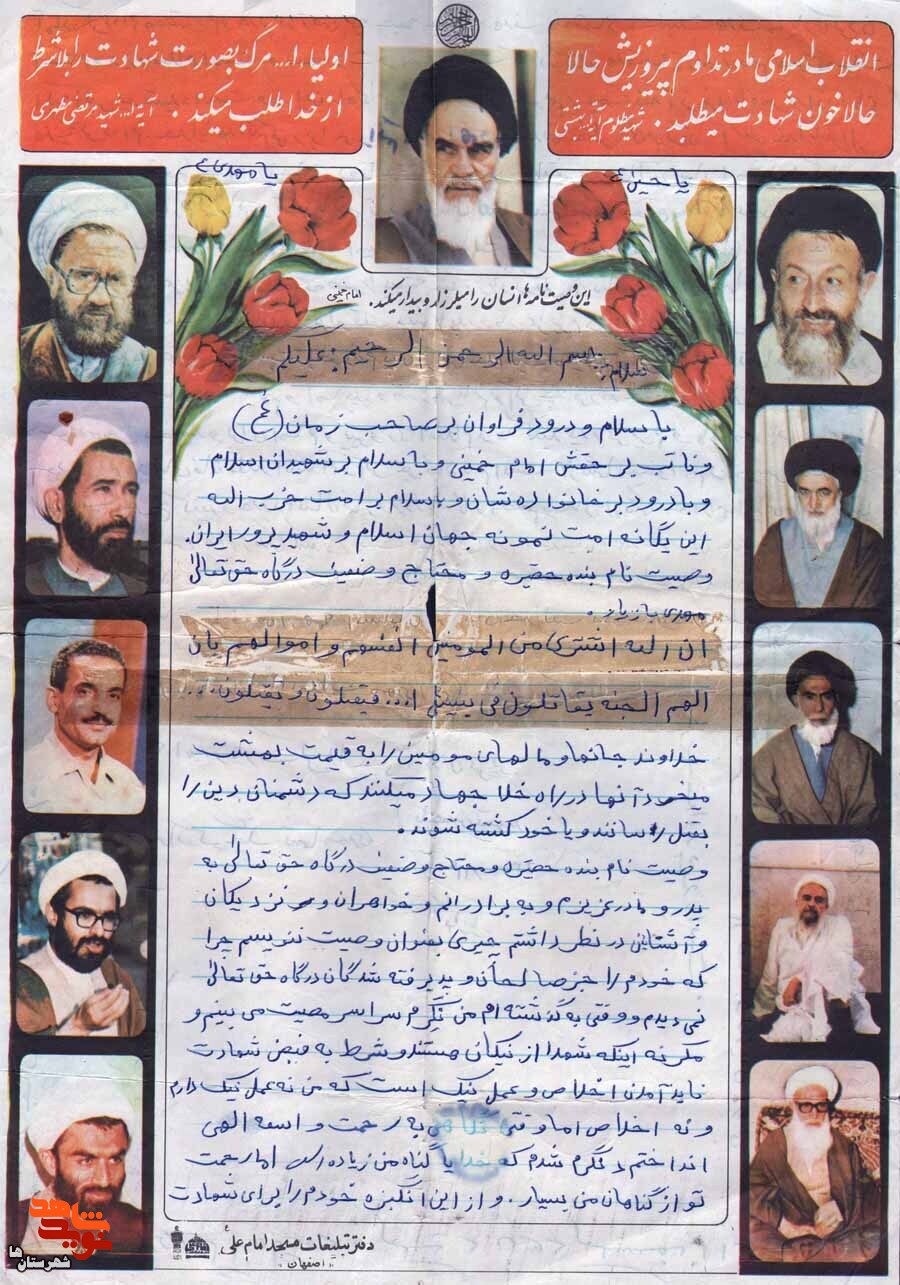 انقلاب اسلامی ما در تداوم پیروزیش حالا
حالا خون شهادت میطلبد . شهید مظلوم آیة... بهشتی
اولیا ا... مرگ بصورت شهادت را بلاشرط
از خدا طلب میکند . آیة ا... شهید مرتضی مطهری
یا حسین ع
یا مهدی ع
این وصیت نامه ها انسان را میلرزاند و بیدار میکند. امام خمینی
بسم الله الرحمن الرحیم : علیکم سلام :
با سلام و درود فراوان بر صاحب زمان (عج)
و نائب بر حقش امام خمینی و با سلام بر شهیدان اسلام
و با درود بر خانواده شان و با سلام بر امت حزب الله
این یگانه امت نمونه جهان اسلام و شهید پرور ایران.
وصیت نام بنده حقیره و محتاج و ضعیف درگاه حق تعالی
مهدی بازیار .
ان الله اشتری من المومنین انفسهم و اموالهم بان
الهم الجنه یقاتلون فی سبیل ا... فیقتلون و یقتلون...
خداوند جانها و مالهای مومنین را به قیمت بهشت
میخرد آنها در راه خدا جهاد میکنند که دشمنان دین را
بقتل رسانند و یا خود کشته شوند .
وصیت نام بنده حقیره و محتاج و ضعیف درگاه حق تعالی به
پدر و مادر عزیزم و به برادرانم و خواهران و نزدیکان
و آشنایان در نظر داشتم چیزی بعنوان وصیت ننویسم چرا
که خودم را جز صالحان و پدیرفته شدگان درگاه حق تعالی
نمی دیدم و وقتی به گذشته ام می نگرم سراسر معصیت می بینم و
مگر نه اینکه شهدا از نیکان هستند و شرط به فیض شهادت
ناید آمدن اخلاص و عمل نیک است که من نه عمل نیک دارم
و نه اخلاص اما وقتی نگاهی به رحمت و اسعه الهی
انداختم دلگرم شدم که خدایا گناه من زیاده است اما رحمت
تو از گناهان من بسیار . و از این انگیزه خودم را برای شهادت
دفتر تبلیغات مسجد امام علی ع
اصفهان
نوید شاهد
شهرستان ها